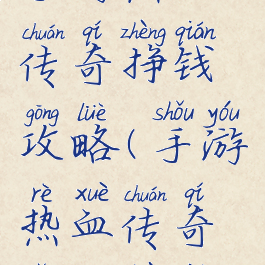 chuán qí zhèng qián
传奇挣钱
gōng lüè shǒu yóu
攻略(手游
rè xuè chuán qí
热血传奇